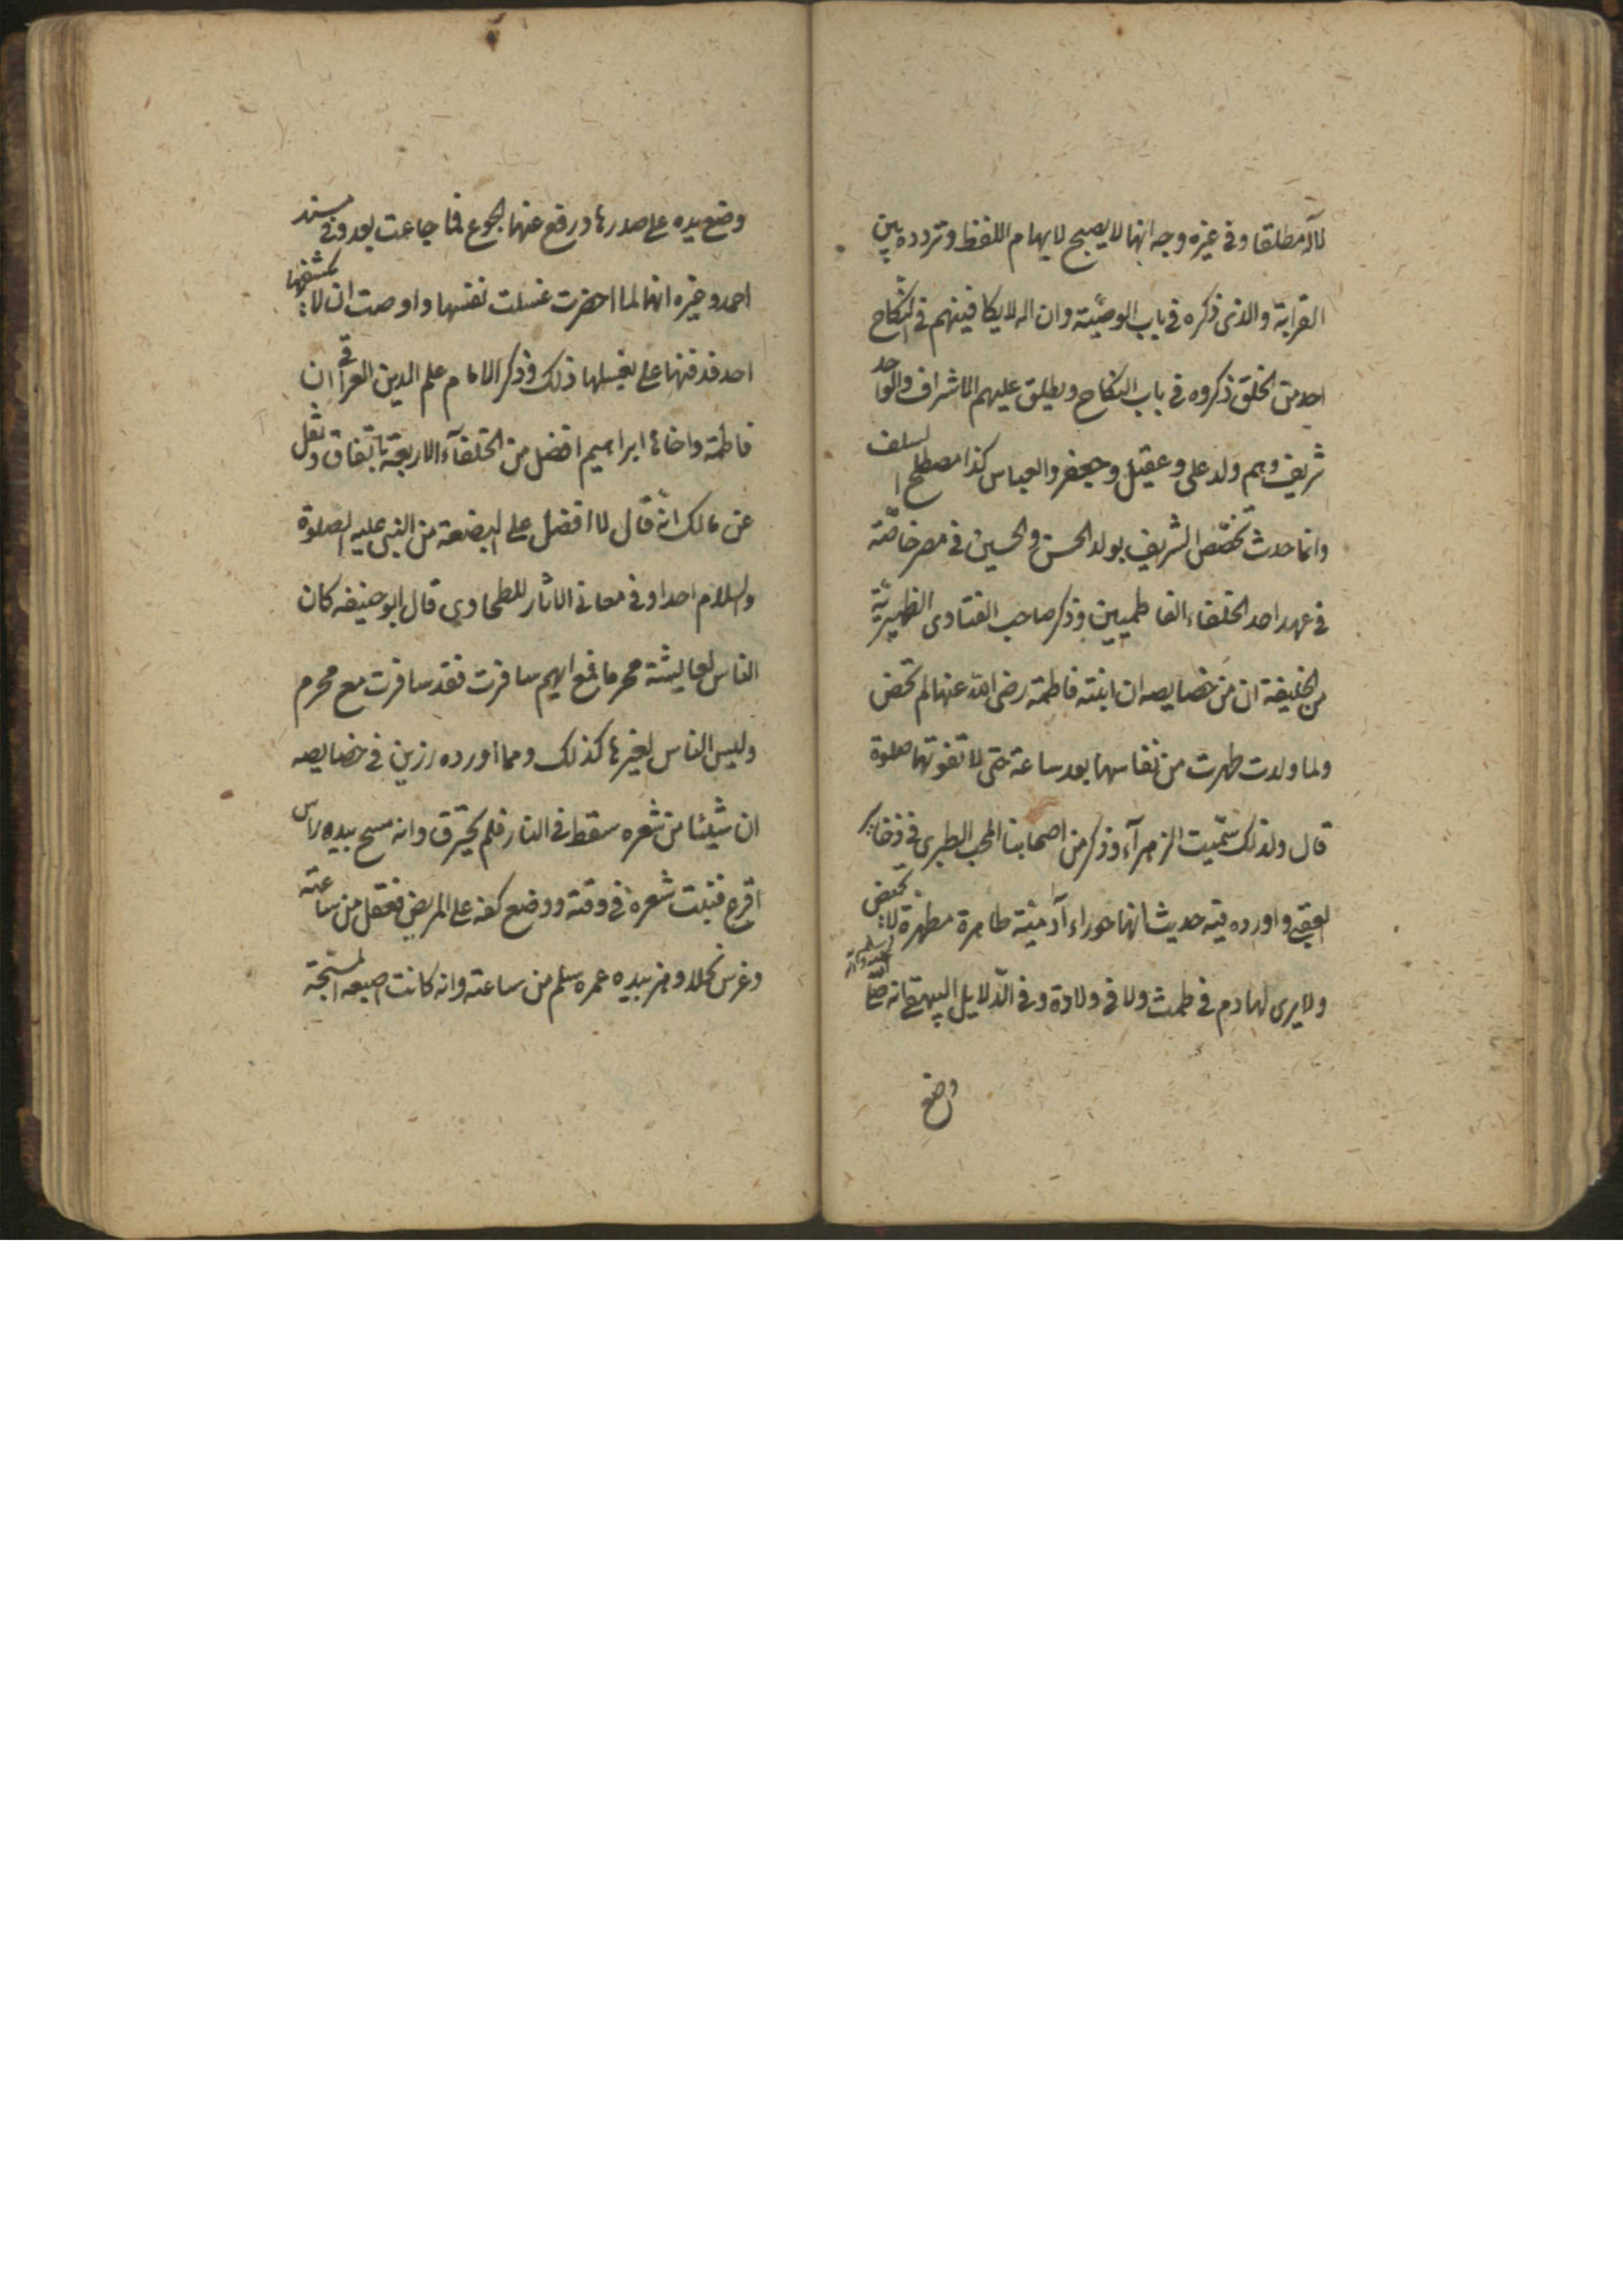 لآله مطلقا وفى غيره وجه انها لا يصح لايهام اللفظ وتردده بين
القرابة والذى ذكره فى باب الوصيّة وان اله لا يكافيهم فى النكاح
احد من الخلق ذكروه فى باب النكاح ويطلق عليهم الاشراف والواحد
شريف وهم ولد على وعقيل وجعفر والعباس كذا مصطلح السلف
وانما حدث تخصّص الشريف بولد الحسن والحسين فى مصر خاصّة
فى عهد احد الخلفاء الفاطميين وذكر صاحب الفتاوى الظهيريّة
من الحنيفة ان من خصايصه ان ابنته فاطمة رضى الله عنها لم تحض
ولما ولدت طهرت من نفاسها بعد ساعة حتى لا تفوتها صلوة
قال ولذلك سمّيت الزهرآء وذكر من اصحابنا المحب الطبرى فى ذخاير
العقبى واورده فيه حديث انها حوراء آدميّة طاهرة مطهرة لا تحيض
ولا يرى لها دم فى طمث ولا فى ولادة وفى الدّلايل البيهقى انه صلّى الله عليه وسلم
وضع
وضع يده على صدرها ورفع عنها الجوع فما جاعت بعد وفى مسند
احمد وغيره انها لما احضرت غسلت نفسها واوصت ان لا يكشفها
احد فدفنها على بغسلها ذلك وذكر الامام علم الدين العراقى ان
فاطمة واخاها ابراهيم افضل من الخلفآء الاربعة باتفاق ونقل
عن مالك انه قال لا افضل على البضعة من النبى عليه الصلوة
والسلام احدا وفى معانى الاثار للطحاوى قال ابو حنيفه كان
الناس لعايشة محرما فمع ايهم سافرت فقد سافرت مع محرم
وليس الناس لغيرها كذلك ومما اورده رزين فى خصايصه
ان شيئا من شعره سقط فى النار فلم يحترق وانه مسح بيده راس
اقرع فنبت شعره فى وقته ووضع كفه على المريض فعقل من ساعته
وغرس نخلا وهز بيده عمره سلم من ساعته وانه كانت اصبعه المسبّحة